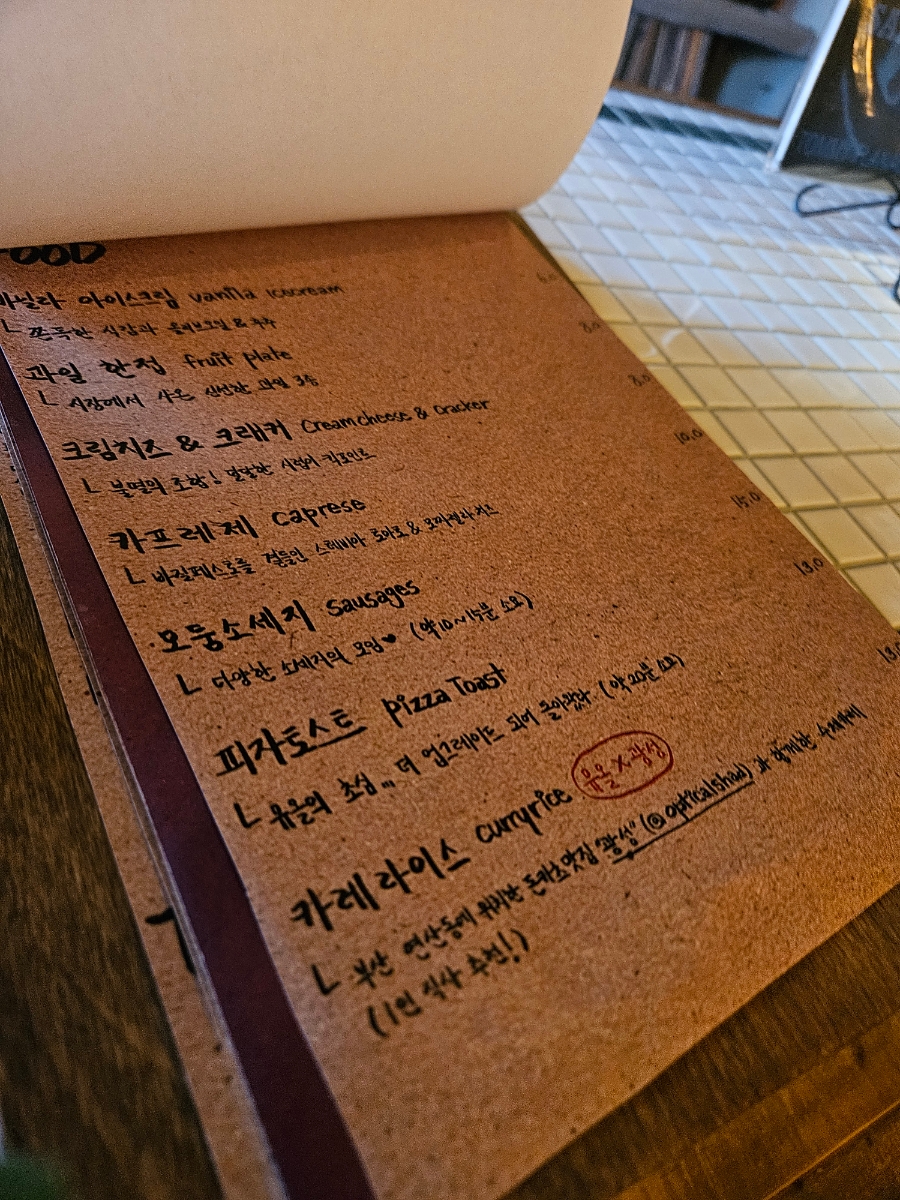 FOOD
바닐라 아이스크림 vanilla icecream 6.0
ㄴ 쫀득한 식감과 올리브오일 & 후추
과일 한접 fruit plate 8.0
ㄴ 시장에서 사온 신선한 과일 3종
크림치즈 & 크래커 Creamcheese & cracker 8.0
ㄴ 불멸의 조합! 달달한 시럽이 킥포인트
카프레제 caprese 10.0
ㄴ 바질페스토를 곁들인 스테비아 토마토 & 모짜렐라치즈
모둠소세지 sausages 15.0
ㄴ 다양한 소세지의 모임♥ (약10~15분 소요)
피자토스트 pizza Toast 13.0
ㄴ 유을의 초심,,, 더 업그레이드 되어 돌아왔다 (약20분 소요)
카레라이스 curryrice 유을X광성 13.0
ㄴ 부산 연산동에 위치한 돈까스맛집 "광성" (@opticalshad) 과 함께한 수제카레
(1인 식사 추천!)